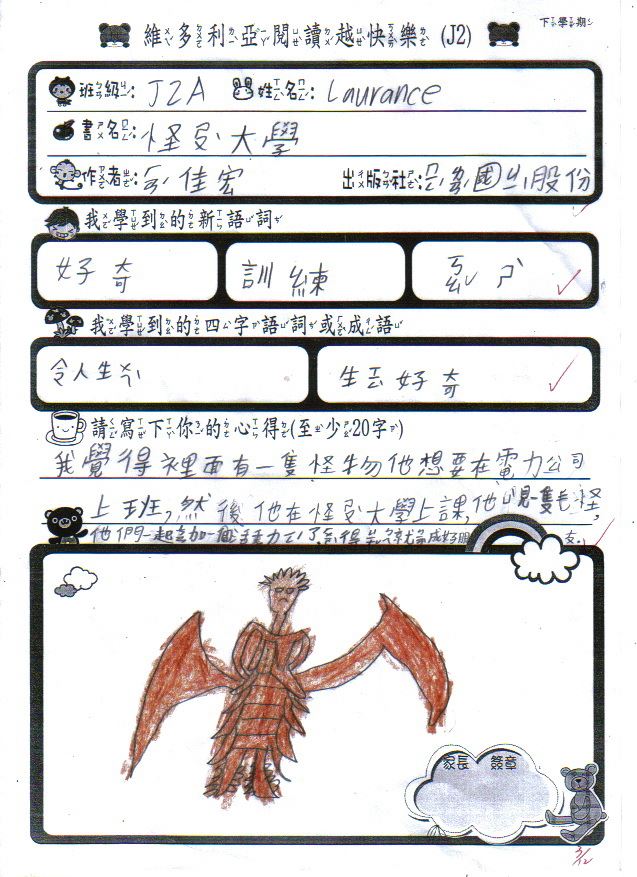 維多利亞閱讀越快樂 (J2) 下學期
班級: J2A 姓名: Laurance
書名: 怪ㄕㄡˋ大學
作者: 佳宏 出版社: 國ㄐㄧˋ股份
我學到的新語詞
好奇 訓練 ㄎㄠˇ ㄕˋ
我學到的四字語詞或成語
令人生ㄒㄧㄢˋ 生ㄙˇ好奇
請寫下你的心得(至少20字)
我覺得裡面有一隻怪物他想要在電力公司
上班,然後他在怪ㄕㄡˋ大學上課,他 一隻毛怪,
他們一起 成好朋友.
家長簽章
3/12